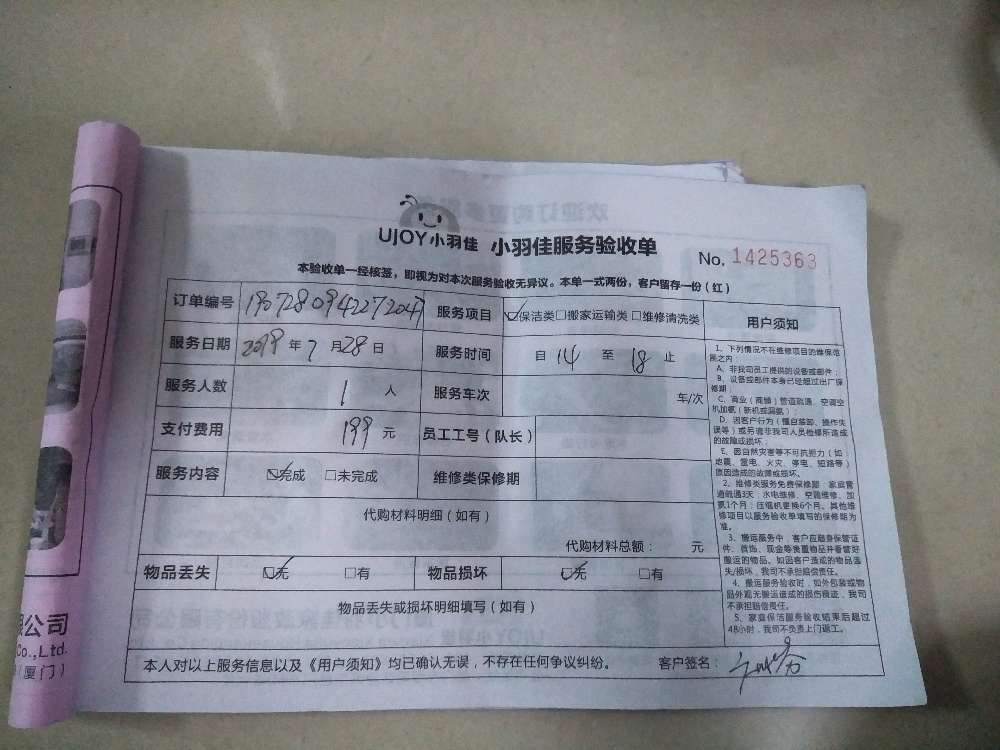 UJOY小羽佳 小羽佳服务验收单 No. 1425363
本验收单一经核签，即视为对本次服务验收无异议。本单一式两份，客户留存一份（红）
订单编号 1907280942272047 服务项目 ☑保洁类□搬家运输类□维修清洗类
服务日期 2019 年 7 月 28 日 服务时间 自 14 至 18 止
服务人数 1 人 服务车次 车/次
支付费用 199 元 员工工号（队长）
服务内容 ☑完成 □未完成 维修类保修期
代购材料明细（如有）
代购材料总额： 元
物品丢失 ☑无 □有 物品损坏 ☑无 □有
物品丢失或损坏明细填写（如有）
本人对以上服务信息以及《用户须知》均已确认无误，不存在任何争议纠纷。 客户签名：
用户须知
1、下列情况不在维修项目的维保范
围之内
A、非我司员工提供的设备或部件；
B、设备或部件本身已经超过出厂保
修期；
C、商业（商铺）管道疏通、空调空
机加氨（新机或漏氨）；
D、因客户行为（擅自装卸、操作失
误等）或另请非我司人员检修所造成
的故障或损坏；
E、因自然灾害等不可抗拒力（如
地震、雷电、火灾、停电、短路等）
原因造成的故障或损坏。
2、维修类服务免费保修期：家庭管
道疏通3天；水电维修、空调维修、加
氨1个月；压缩机更换6个月。其他维
修项目以服务验收单填写的保修期为
准。
3、搬运服务中，客户应随身保管证
件、首饰、现金等贵重物品并看管好
搬运的物品。如因客户造成的物品丢
失/损坏，我司不承担赔偿责任。
4、搬运服务验收时，如外包装或物
品外观无搬运造成的损伤痕迹，我司
不承担赔偿责任。
5、家庭保洁服务验收结束后超过
48小时，我司不负责上门返工。
限公司
Co.,Ltd.
（厦门）